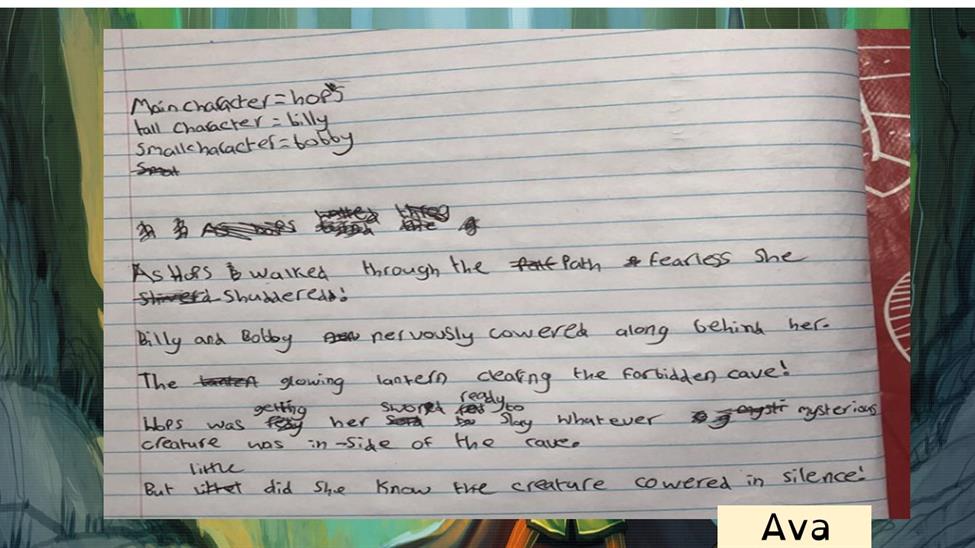 Main character = hops
tall Character = billy
Smallcharacter = bobby
As Hops walked through the Path fearless She
Shuddered!
Billy and Bobby nervously cowered along behind her.
The glowing lantern clearing the forbidden cave!
getting sword ready to
Hops was her Slay whatever mysterious
creature was in-side of the cave.
little
But did She know the creature cowered in silence!
Ava